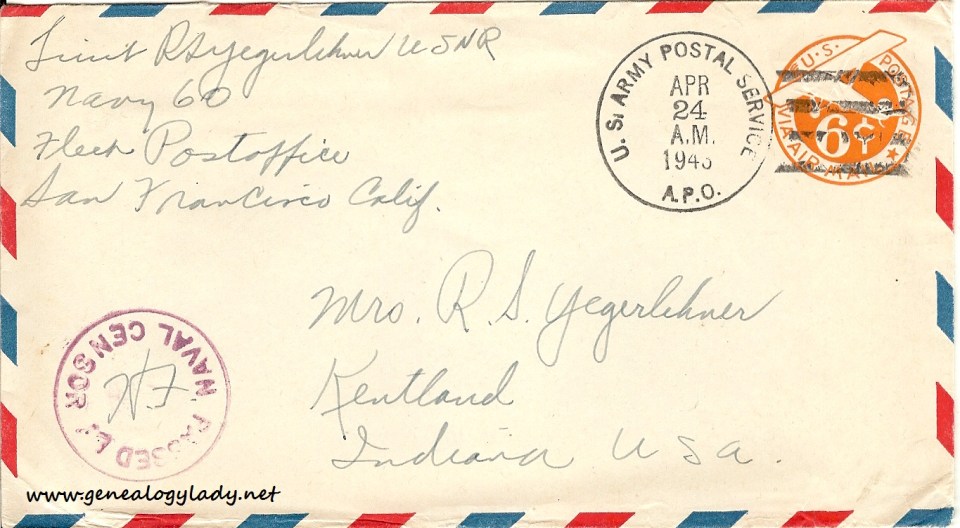 Lieut R S Yegerlehner USNR
Navy 60
Fleet Postoffice
San Francisco Calif.
U.S. ARMY POSTAL SERVICE
APR
24
A.M.
1943
A.P.O.
U.S. POSTAGE
6¢
VIA AIR MAIL
Mrs. R. S. Yegerlehner
Kentland
Indiana U S a.
PASSED BY NAVAL CENSOR
www.genealogylady.net